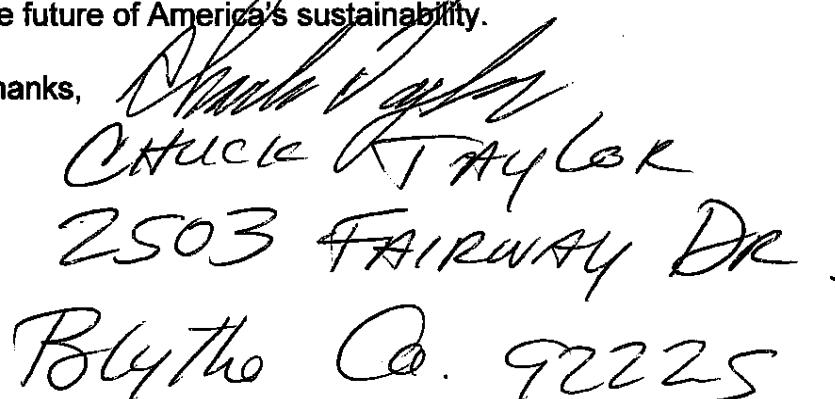 e future of America's sustainability.
hanks,
CHUCK TAYLOR
2503 FAIRWAY DR.
Blythe Ca. 92225